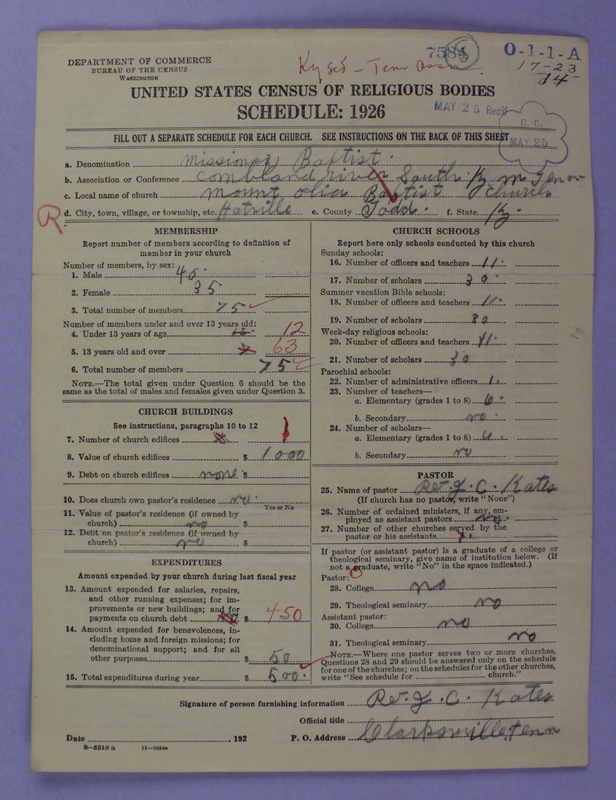 DEPARTMENT OF COMMERCE
BUREAU OF THE CENSUS
WASHINGTON
7584
O-1-1-A
17-23
14
UNITED STATES CENSUS OF RELIGIOUS BODIES
SCHEDULE: 1926
MAY 25 Rec'd
C. C.
MAY 25
FILL OUT A SEPARATE SCHEDULE FOR EACH CHURCH. SEE INSTRUCTIONS ON THE BACK OF THIS SHEET
a. Denomination Missionary Baptist
b. Association or Conference Combland river South Ky
c. Local name of church mount olia Baptist church
d. City, town, village, or township, etc. Hatville e. County Todd. f. State Ky
R
MEMBERSHIP
Report number of members according to definition of member in your church
Number of members, by sex:
1. Male 40.
2. Female 35
3. Total number of members 75
Number of members under and over 13 years old:
4. Under 13 years of age 12
5. 13 years old and over 63
6. Total number of members 75
NOTE.—The total given under Question 6 should be the same as the total of males and females given under Question 3.
CHURCH BUILDINGS
See instructions, paragraphs 10 to 12
7. Number of church edifices 1
8. Value of church edifices $ 1000
9. Debt on church edifices none $
10. Does church own pastor's residence no.
Yes or No
11. Value of pastor's residence (if owned by church) no $
12. Debt on pastor's residence (if owned by church) no $
EXPENDITURES
Amount expended by your church during last fiscal year
13. Amount expended for salaries, repairs, and other running expenses; for improvements or new buildings; and for payments on church debt $ 450
14. Amount expended for benevolences, including home and foreign missions; for denominational support; and for all other purposes $ 50
15. Total expenditures during year $ 500.
CHURCH SCHOOLS
Report here only schools conducted by this church
Sunday schools:
16. Number of officers and teachers 11.
17. Number of scholars 30.
Summer vacation Bible schools:
18. Number of officers and teachers 11.
19. Number of scholars 30
Week-day religious schools:
20. Number of officers and teachers 11.
21. Number of scholars 30
Parochial schools:
22. Number of administrative officers 1.
23. Number of teachers—
a. Elementary (grades 1 to 8) 6.
b. Secondary no.
24. Number of scholars—
a. Elementary (grades 1 to 8)
b. Secondary no
PASTOR
25. Name of pastor Rev J. C. Kates
(If church has no pastor, write "None")
26. Number of ordained ministers, if any, employed as assistant pastors no.
27. Number of other churches served by the pastor or his assistants
If pastor (or assistant pastor) is a graduate of a college or theological seminary, give name of institution below. (If not a graduate, write "No" in the space indicated.)
Pastor:
28. College no
29. Theological seminary no
Assistant pastor:
30. College no
31. Theological seminary no
NOTE.—Where one pastor serves two or more churches, Questions 28 and 29 should be answered only on the schedule for one of the churches; on the schedules for the other churches, write "See schedule for church."
Signature of person furnishing information Rev. J. C. Kates
Official title
Date , 192 P. O. Address Clarksville Tenn
8—5518a 11—9084a